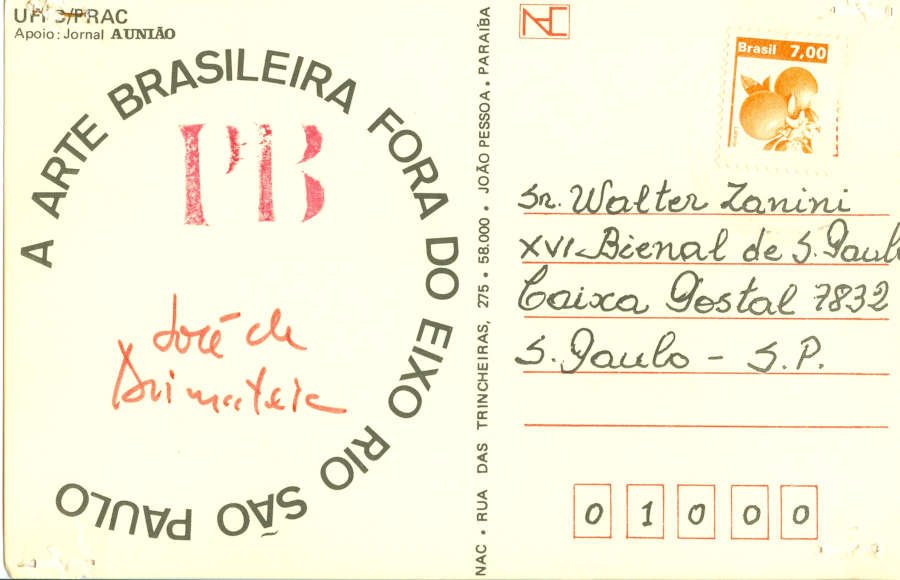 /PRAC
Apoio: Jornal A UNIÃO
A ARTE BRASILEIRA FORA DO EIXO RIO SÃO PAULO
PB
José de
Arimateia
NAC • RUA DAS TRINCHEIRAS, 275 • 58.000 • JOÃO PESSOA • PARAÍBA
NAC
Brasil 7,00
Sr. Walter Zanini
XVI Bienal de S. Paulo
Caixa Postal 7832
S. Paulo - S.P.
0 1 0 0 0